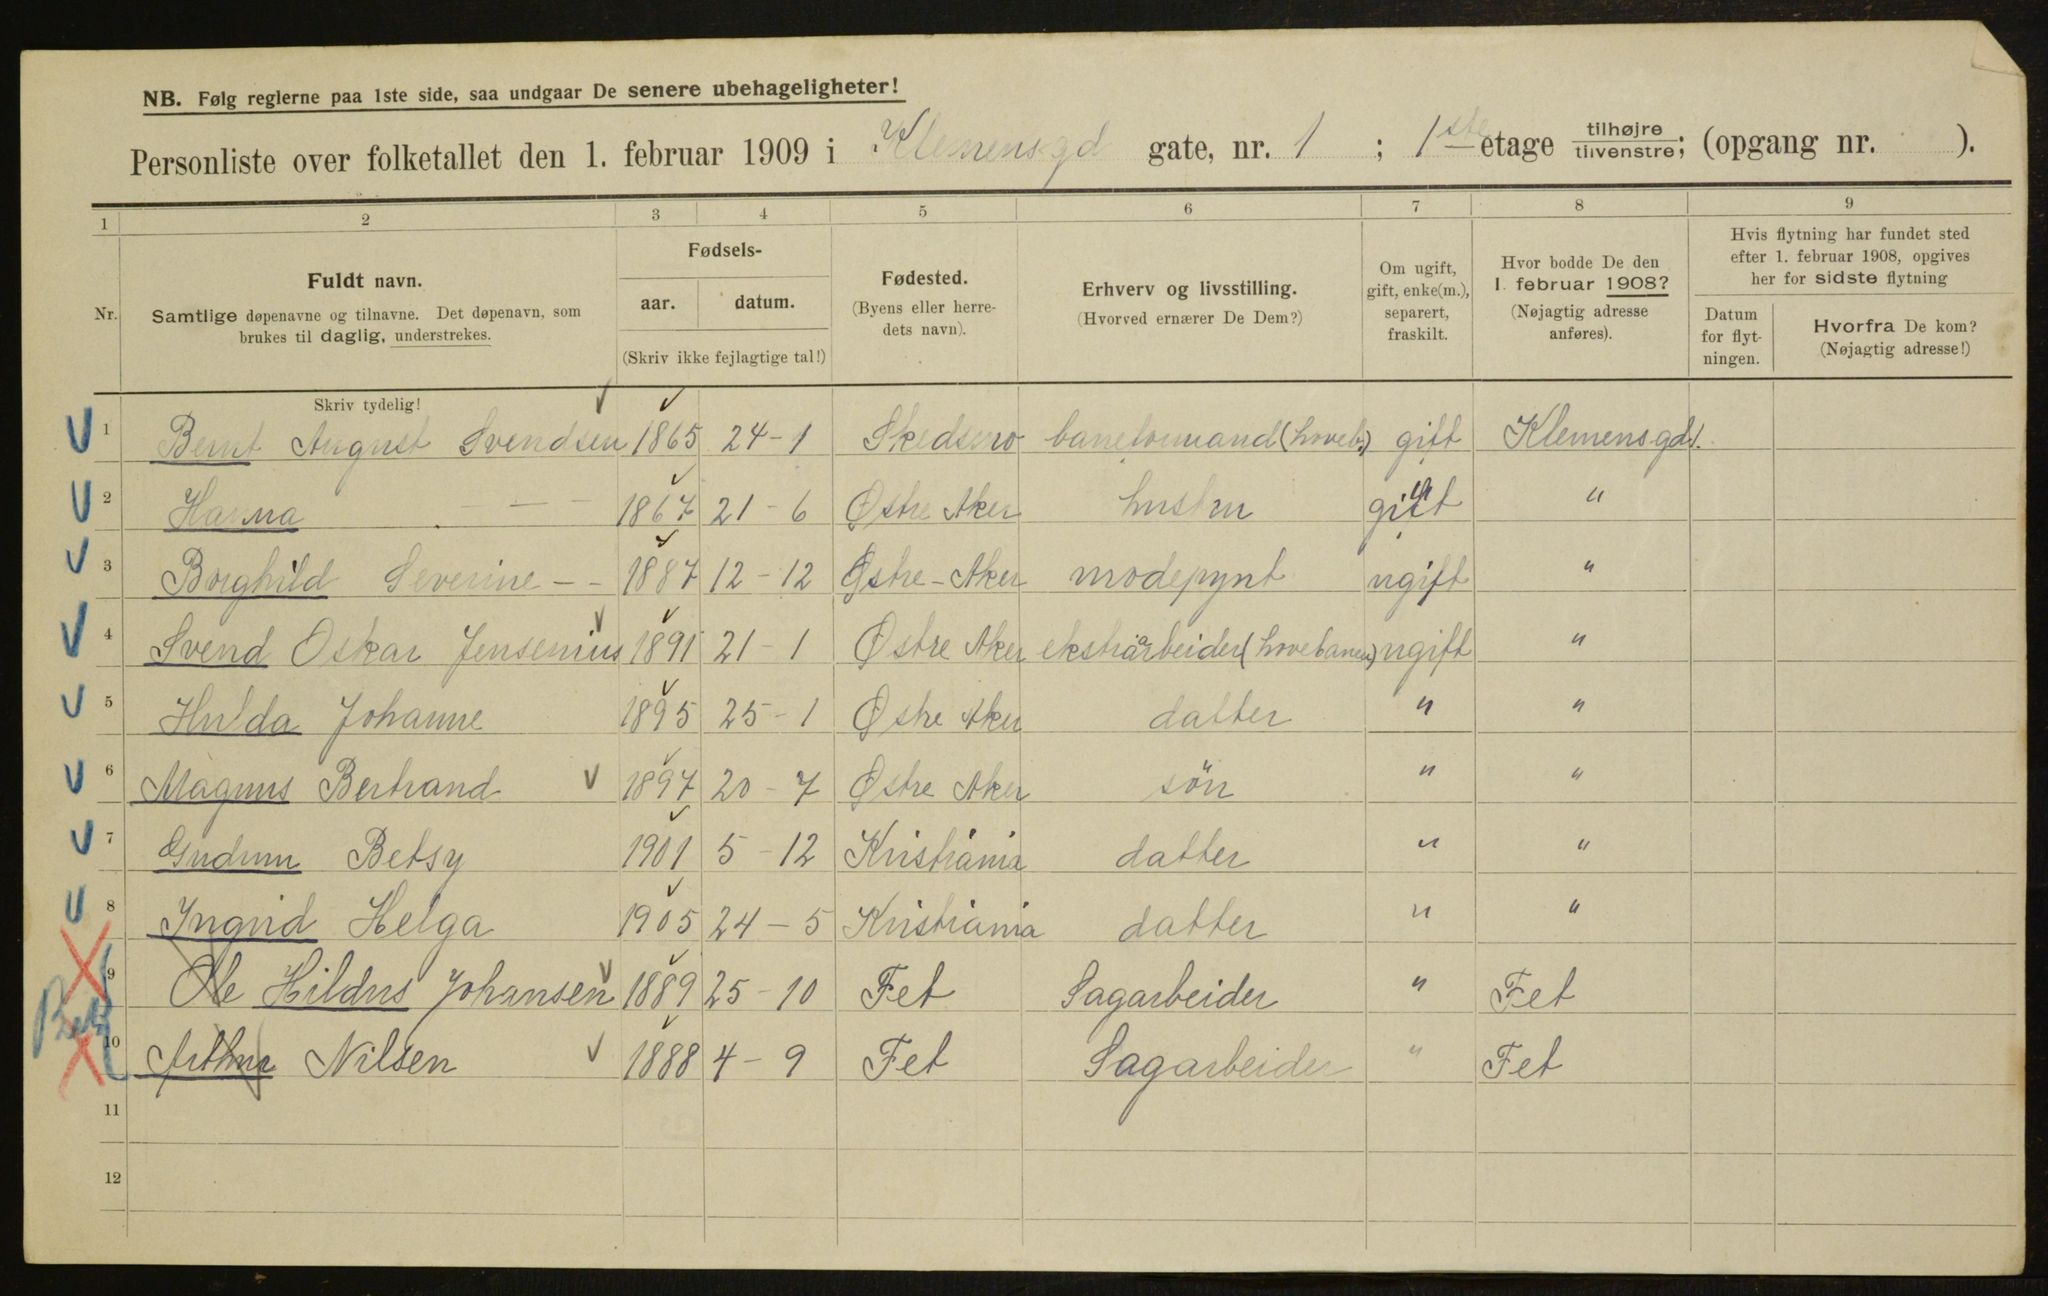 NB. Følg reglerne paa 1ste side, saa undgaar De senere ubehageligheter!
Personliste over folketallet den 1. februar 1909 i Klemensgd gate, nr. 1 ; 1ste etage tilhøjre tilvenstre; (opgang nr. ).
1 2 3 4 5 6 7 8 9
Nr.
Fuldt navn.
Samtlige døpenavne og tilnavne. Det døpenavn, som
brukes til daglig, understrekes.
Fødsels-
aar. datum.
(Skriv ikke fejlagtige tal!)
Fødested.
(Byens eller herre-
dets navn).
Erhverv og livsstilling.
(Hvorved ernærer De Dem?)
Om ugift,
gift, enke(m.),
separert,
fraskilt.
Hvor bodde De den
1. februar 1908?
(Nøjagtig adresse
anføres).
Hvis flytning har fundet sted
efter 1. februar 1908, opgives
her for sidste flytning
Datum
for flyt-
ningen.
Hvorfra De kom?
(Nøjagtig adresse!)
Skriv tydelig!
1 Bernt August Svendsen 1865 24-1 Skedsmo baneformand (hoveb.) gift Klemensgd 1.
2 Hanna - - 1867 21-6 Østre Aker hustru gift "
3 Borghild Severine - - 1887 12-12 Østre-Aker modepynt ugift "
4 Svend Oskar Jensenius 1891 21-1 Østre Aker ekstraarbeider (hovebanen) ugift "
5 Hulda Johanne 1895 25-1 Østre Aker datter " "
6 Magnus Bertrand 1897 20-7 Østre Aker sön " "
7 Gudrun Betsy 1901 5-12 Kristiania datter " "
8 Ingrid Helga 1905 24-5 Kristiania datter " "
9 Ole Hildus Johansen 1889 25-10 Fet Sagarbeider " Fet
10 Arthur Nilsen 1888 4-9 Fet Sagarbeider " Fet
11
12